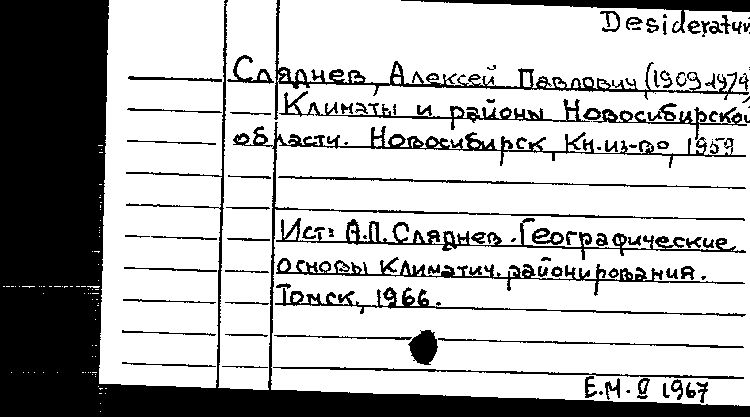 Desideratum
Сляднев, Алексей Павлович (1909-1974)
Климаты и районы Новосибирской
области. Новосибирск, Кн.из-во, 1959
Ист: А.П.Сляднев. Географические
основы климатич. районирования.
Томск, 1966.
Е.М. II 1967